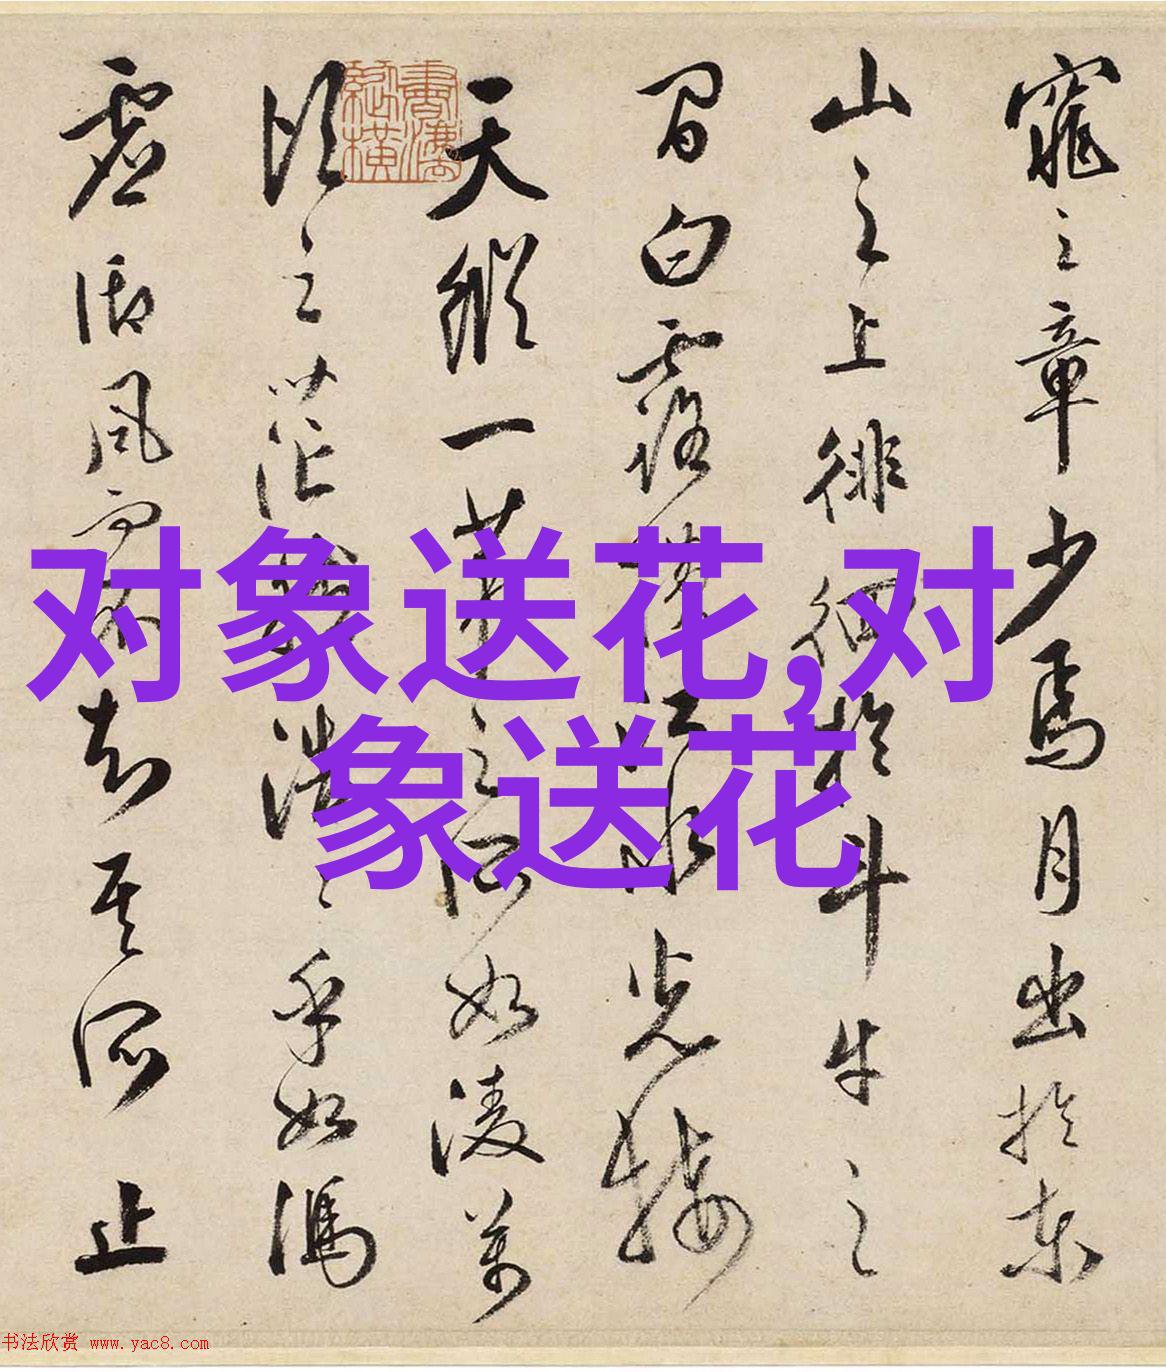 窕之章少焉月出於東
山之上徘徊於斗牛之
間白露横江水光接
天縱一葦之所如陵萬
頃之茫然浩々乎如馮
虚御風而不知其所止
对象送花,对
象送花
书法欣赏 www.yac8.com